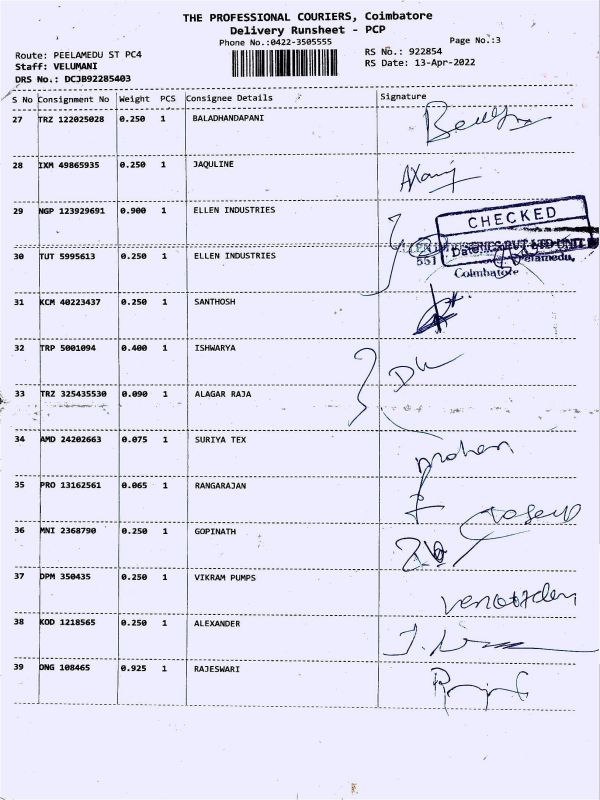 THE PROFESSIONAL COURIERS, Coimbatore
Delivery Runsheet - PCP
Phone No.:0422-3505555
Page No.:3
Route: PEELAMEDU ST PC4
RS No.: 922854
Staff: VELUMANI
RS Date: 13-Apr-2022
DRS No.: DCJB92285403
S No Consignment No Weight PCS Consignee Details Signature
27 TRZ 122025028 0.250 1 BALADHANDAPANI
28 IXM 49865935 0.250 1 JAQULINE
29 NGP 123929691 0.900 1 ELLEN INDUSTRIES
CHECKED
30 TUT 5995613 0.250 1 ELLEN INDUSTRIES
551 Peelamedu,
Coimbatore
31 KCM 40223437 0.250 1 SANTHOSH
32 TRP 5001094 0.400 1 ISHWARYA
33 TRZ 325435530 0.090 1 ALAGAR RAJA
34 AMD 24202663 0.075 1 SURIYA TEX
35 PRO 13162561 0.065 1 RANGARAJAN
36 MNI 2368790 0.250 1 GOPINATH
37 DPM 350435 0.250 1 VIKRAM PUMPS
38 KOD 1218565 0.250 1 ALEXANDER
39 ONG 108465 0.925 1 RAJESWARI